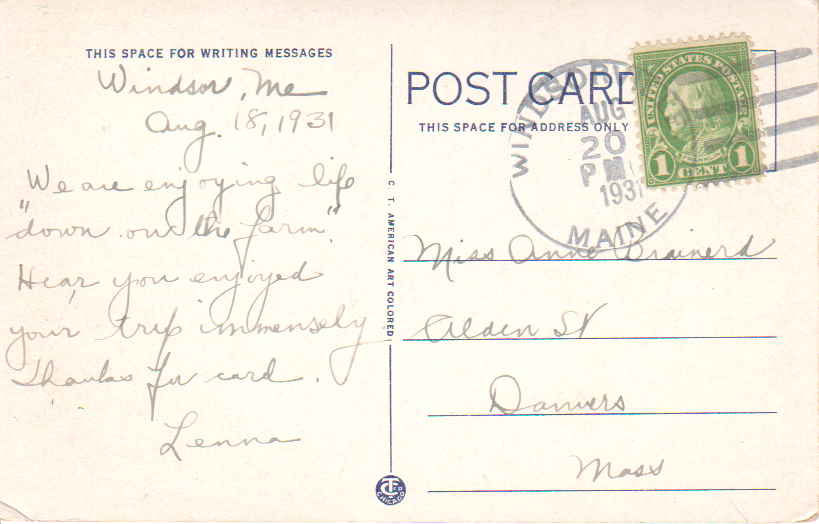 THIS SPACE FOR WRITING MESSAGES
Windsor, Me
Aug. 18, 1931
We are enjoying life
"down on the farm."
Hear you enjoyed
your trip immensely
Thanks for card.
Lenna
C. T. AMERICAN ART COLORED
CHICAGO
POST CARD
THIS SPACE FOR ADDRESS ONLY
WINDSOR
AUG
20
PM
1931
MAINE
UNITED STATES POSTAGE
1 CENT 1
Miss Anne Brainerd
Alden St
Danvers
Mass